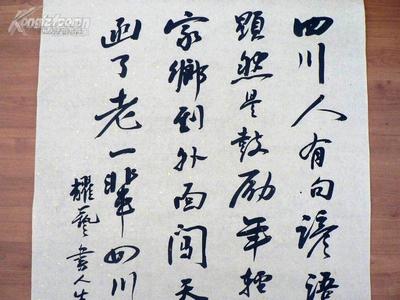 四川人有句谚语
显然是鼓励年轻
家乡到外面闯天
函了老一辈四川
耀艺书人生
Kongfz.com